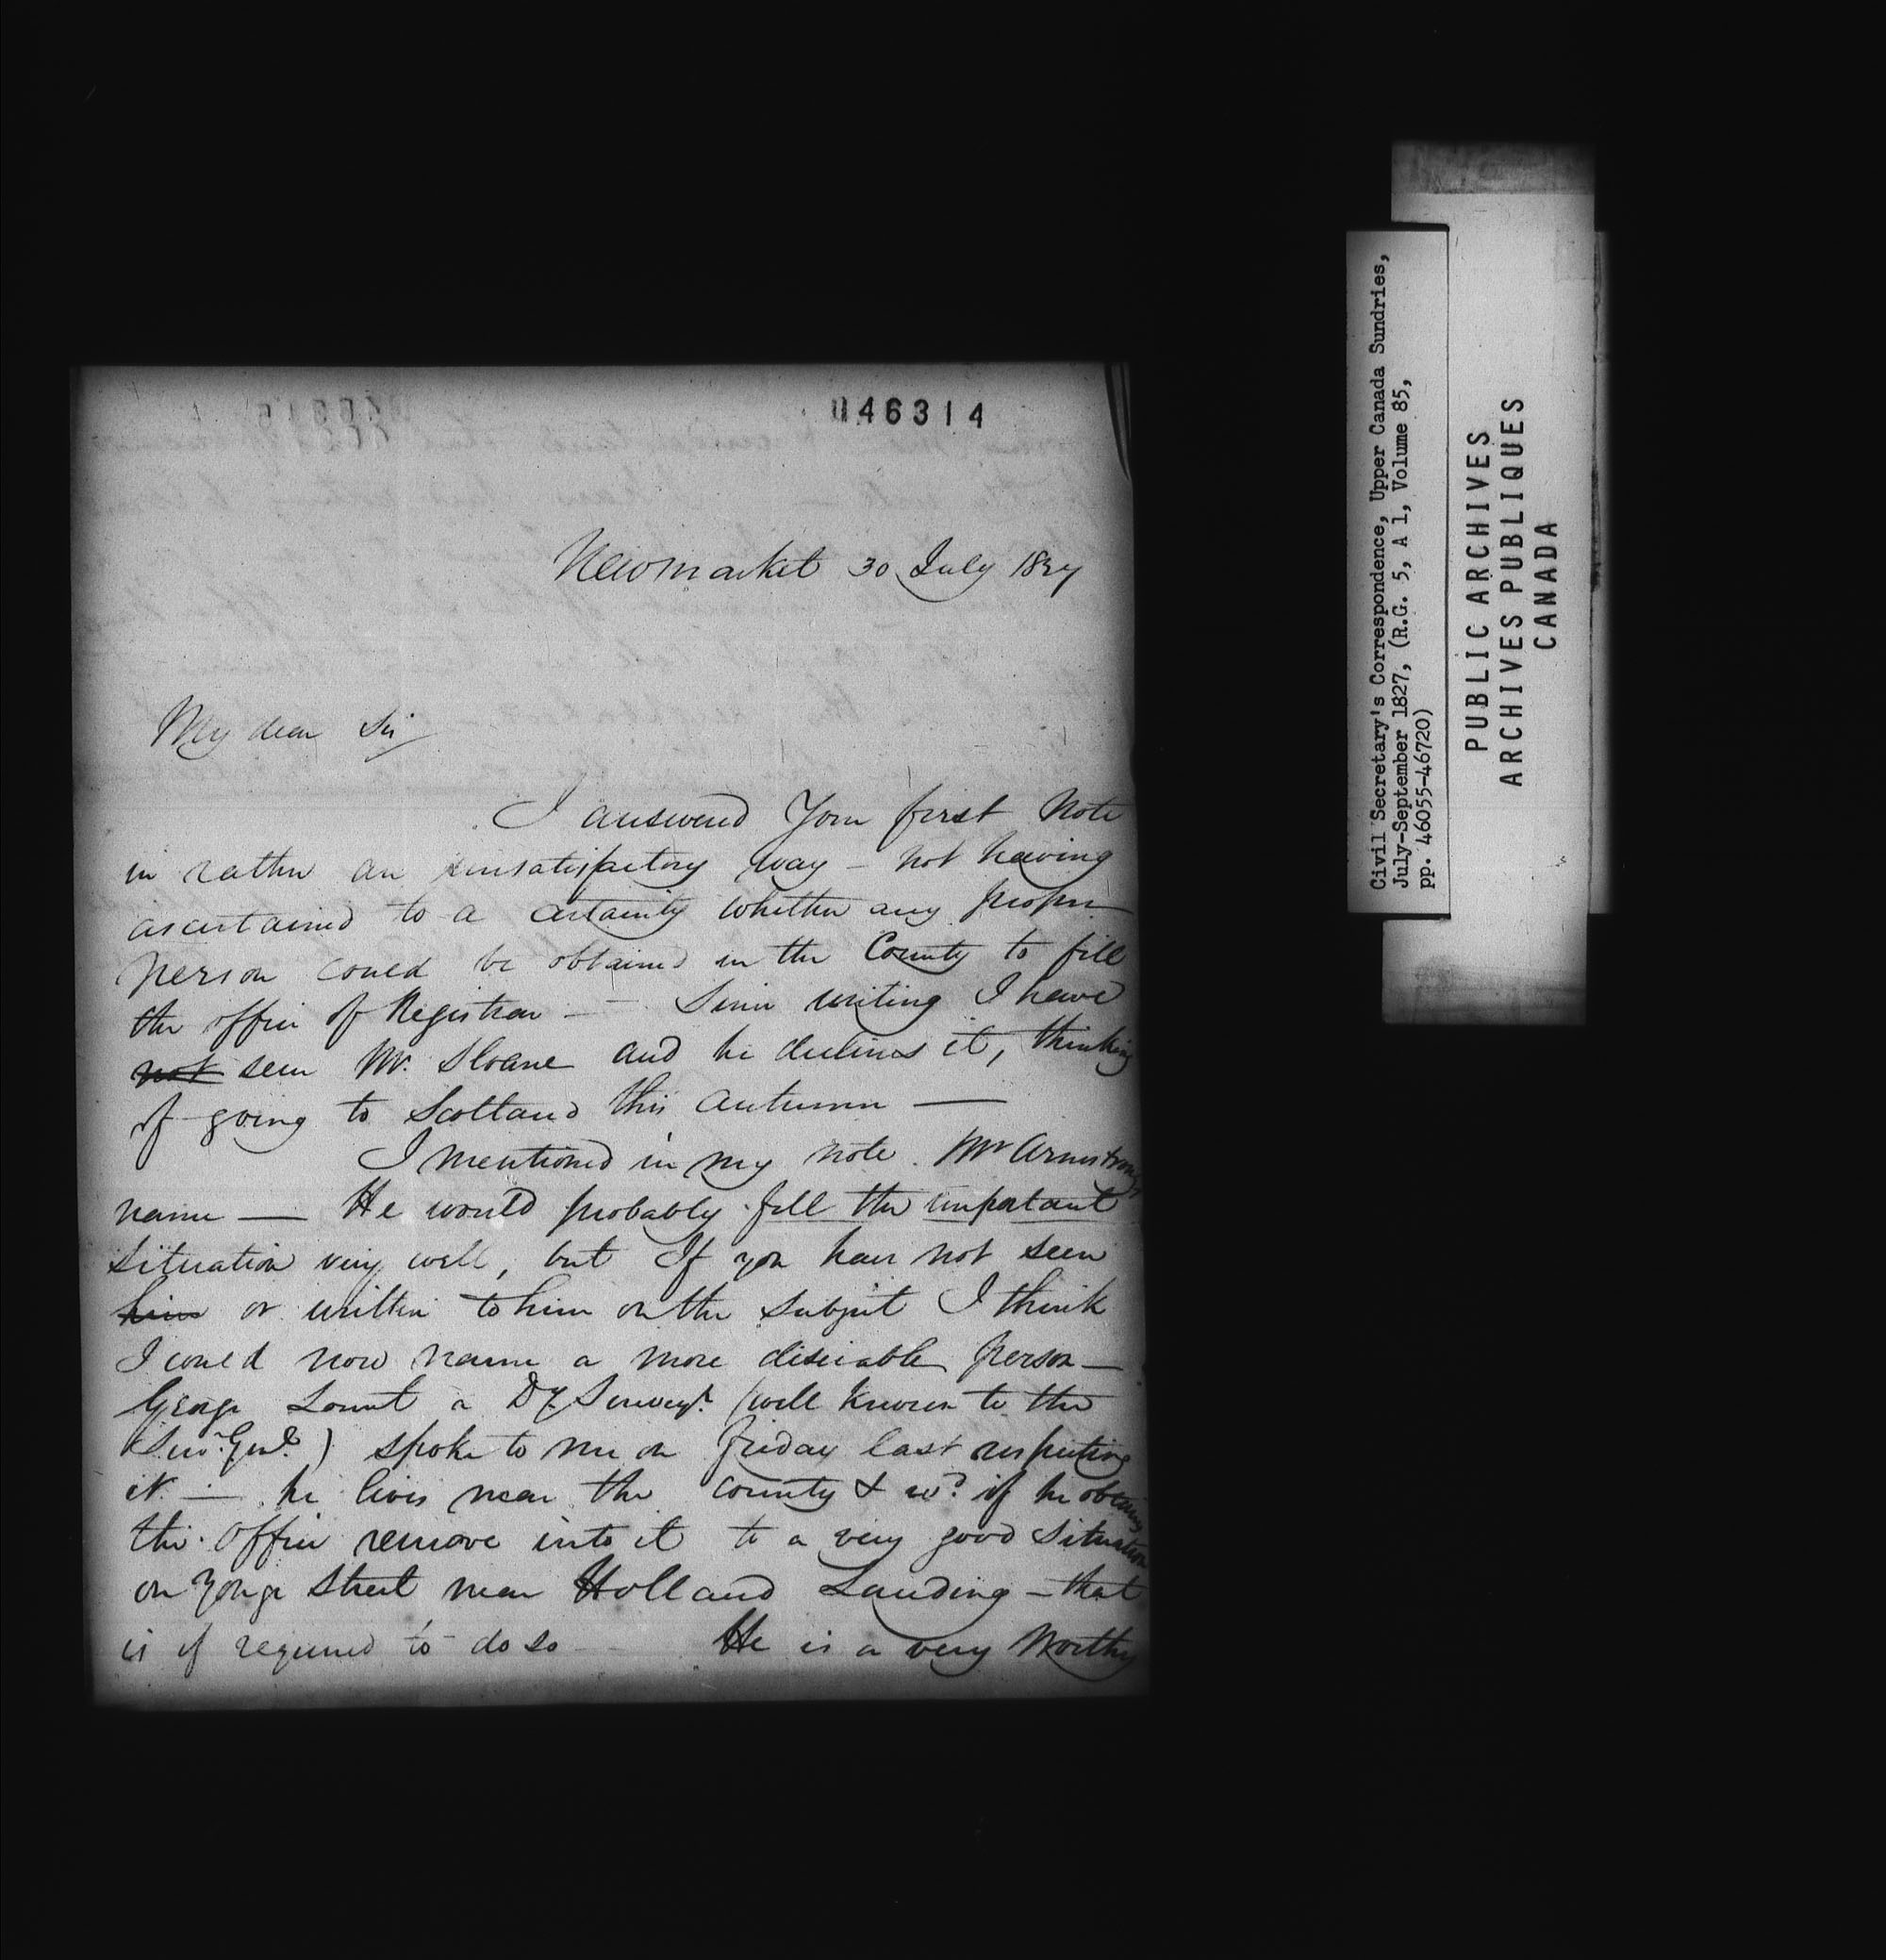 046314
Newmarket 30 July 1827
My dear Sir
I answered Your first Note
in rather an unsatisfactory way – not having
ascertained to a certainty whether any proper
person could be obtained in the County to fill
the office of Registrar – – Since writing I have
not seen Mr. Sloane and he declines it, thinking
of going to Scotland this Autumn —
I mentioned in my note Mr Armstrong's
name — He would probably fill the important
situation very well, but If you have not seen
him or written to him on the subject I think
I could now name a more desirable person —
George Lount a Dy. Surveyr. (well known to the
Sur. Genl.) spoke to me on friday last respecting
it. — he lives near the County & wd. if he obtains
the Office remove into it to a very good situation
on Yonge Street near Holland Landing – that
is if required to do so – He is a very Worthy
Civil Secretary's Correspondence, Upper Canada Sundries,
July-September 1827, (R.G. 5, A 1, Volume 85,
pp. 46055-46720)
PUBLIC ARCHIVES
ARCHIVES PUBLIQUES
CANADA